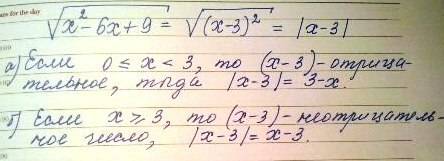 √x²-6x+9 = √(x-3)² = |x-3|
а) Если 0 ≤ x < 3, то (x-3)-отрица-
тельное, тогда |x-3| = 3-x.
б) Если x ≥ 3, то (x-3)-неотрицатель-
ное число, |x-3| = x-3.